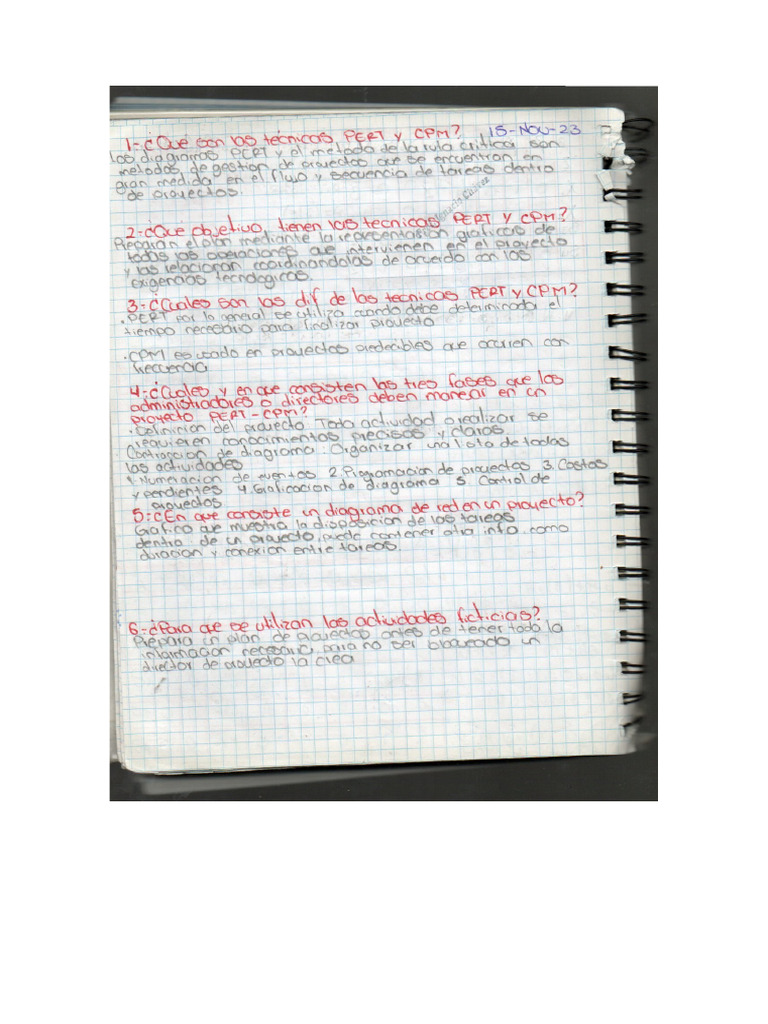 1-¿Qué son las técnicas PERT y CPM? 15-Nov-23
Los diagramas PERT y el metodo de la ruta critica son
metodos de gestion de proyectos que se encuentran en
gran medida en el flujo y secuencia de tareas dentro
de proyectos.
2-¿Que objetivo, tienen las tecnicas PERT Y CPM?
Preparan el plan mediante la representasion graficas de
todas las operaciones que intervienen en el proyecto
y las relacionan coordinandolas de acuerdo con las
exigencias tecnologicas.
3-¿Cuales son las dif de las tecnicas PERT y CPM?
·PERT por lo general se utiliza cuando debe determinada el
tiempo necesario para finalizar proyecto
·CPM es usado en proyectos predecibles que ocurren con
frecuencia
4-¿Cuales y en que consisten las tres fases que los
administradores o directores deben manejar en un
proyecto PERT-CPM?
·Definicion del proyecto. Toda actividad a realizar se
requieren conocimientos precisos y claros
Contraccion de diagrama. Organizar una lista de todas
las actividades
1. Numeracion de eventos 2. Programacion de proyectos 3. Costos
y pendientes 4. Graficacion de diagrama 5 Control de
proyectos
5-¿En que consiste un diagrama de red en un proyecto?
Grafico que muestra la disposicion de las tareas
dentro de un proyecto, puede contener otra info. como
duracion y conexion entre tareas.
6-¿Para que se utilizan las actividades ficticias?
Prepara un plan de proyectos antes de tener todo la
informacion necesaria para no ser bloqueado un
director de proyecto la crea